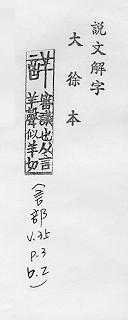 説文解字
大徐本
詳
審議也从言
羊聲似羊切
(言部
V.35
P.3
b.2)